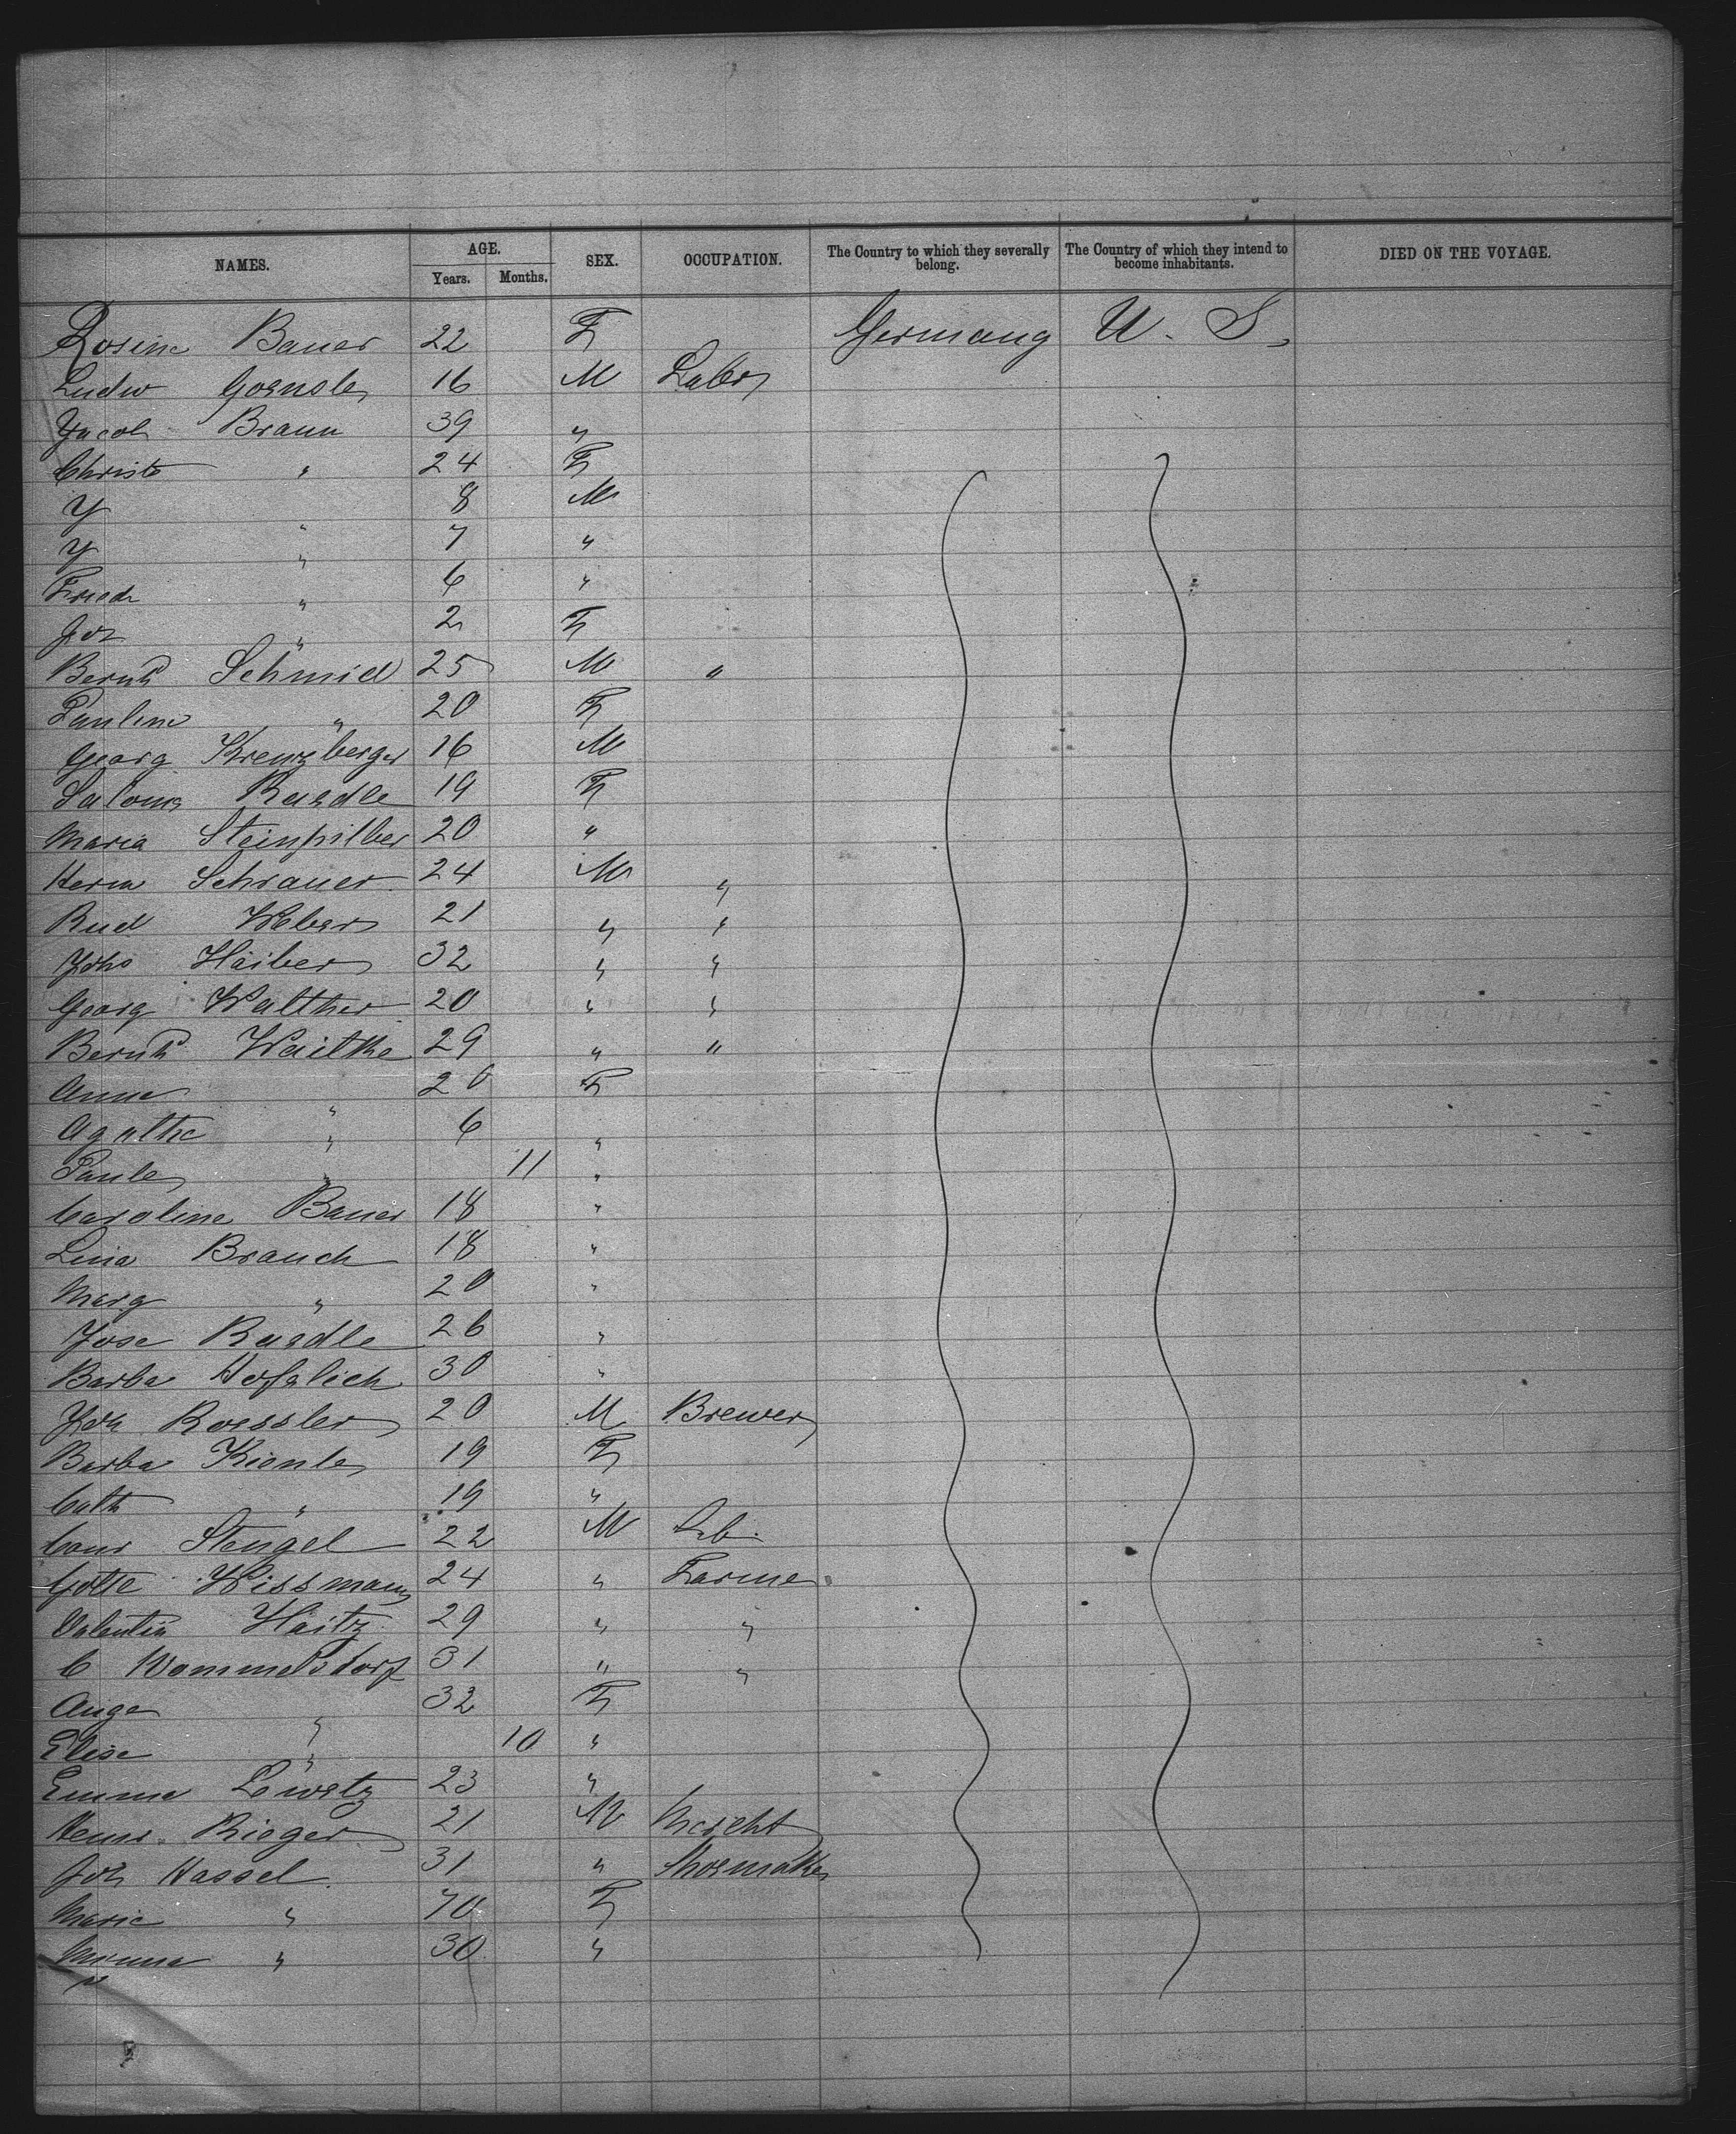 NAMES. AGE. Years. Months. SEX. OCCUPATION. The Country to which they severally belong. The Country of which they intend to become inhabitants. DIED ON THE VOYAGE.
Rosine Bauer 22 F Germany U. S.
Ludw 16 M Labor
Jacob Braun 39 "
Christe " 24 F
J " 8 M
J " 7 "
Friedr " 6 "
Jos " 2 F
Bernhd Schmid 25 M "
Pauline " 20 F
Georg Kreuzberger 16 M
Salome Raedle 19 F
Maria Steinhilber 20 "
Herm Schrauer 24 M "
Rud Weber 21 " "
Johs Haiber 32 " "
Georg Walther 20 " "
Bernhd Waithe 29 " "
Anna " 20 F
Agathe " 6 "
Paule " 11 "
Caroline Bauer 18 "
Lina Brauch 18 "
Marg " 20 "
Jose Raedle 26 "
Barba 30 "
Joh Roessler 20 M Brewer
Barba Kienle 19 F
Cath " 19 "
Conr Stengel 22 M Lb.
Gotte Wissmann 24 " Farmer
Valentin Haitz 29 " "
C Wommelsdorf 31 " "
Auge " 32 F
Elise " 10 "
Emma Lewetz 23 "
Henr. Rieger 21 M Marcht
Joh Hassel 31 " Shoemaker
Marie " 70 F
" 30 "